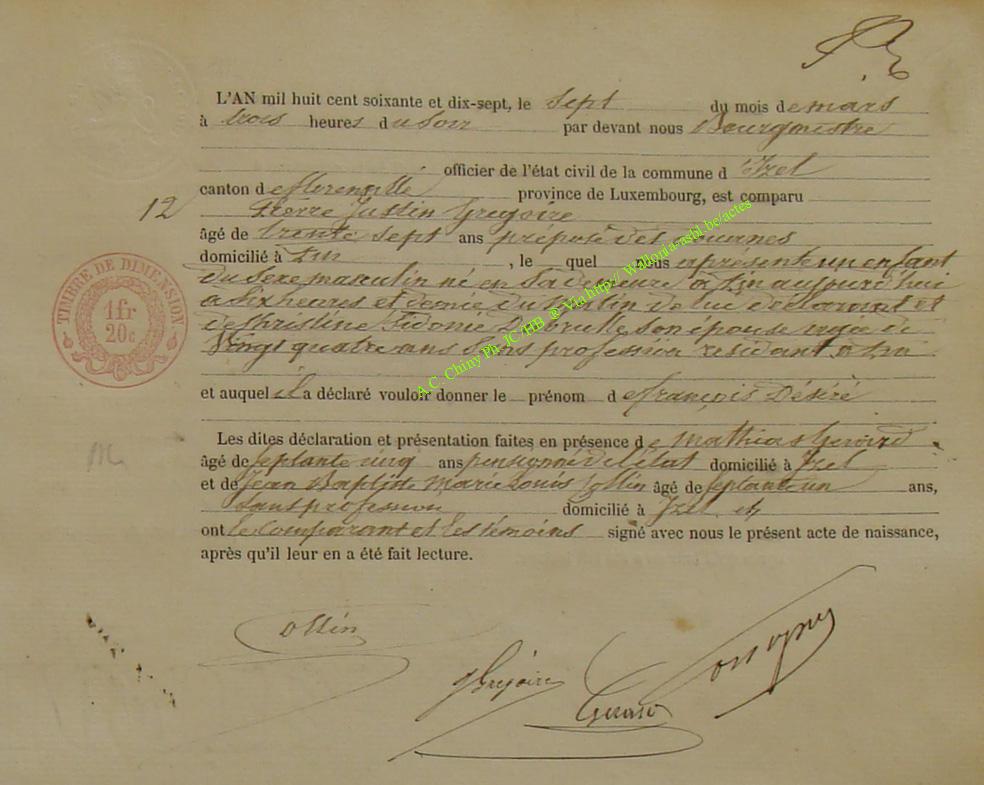 L'AN mil huit cent soixante et dix-sept, le sept du mois de mars
à trois heures du soir par devant nous Bourgmestre
officier de l'état civil de la commune d'Izel
canton de florenville province de Luxembourg, est comparu
12 Pierre Justin Gregoire
âgé de trente sept ans préposé des douanes
domicilié à , le quel nous a présenté un enfant
du Sexe masculin né en Sa demeure à aujourd'hui
à Six heures et demie du matin de lui déclarant et
de Christine Sidonie son épouse agée de
Vingt quatre ans Sans profession résidant à
et auquel il a déclaré vouloir donner le prénom de françois Désiré
Les dites déclaration et présentation faites en présence de Mathias Gerard
âgé de septante cinq ans pensionné de l'état domicilié à Izel
et de Jean Baptiste Marie Louis Ossin âgé de septante un ans,
Sans profession domicilié à Izel et
ont le comparant et les témoins signé avec nous le présent acte de naissance,
après qu'il leur en a été fait lecture.
TIMBRE DE DIMENSION
1fr
20c
A.C. Chiny Ph. JC/HB ® Via http:// Wallonia-asbl.be/actes
Ossin
Grégoire
Gerard